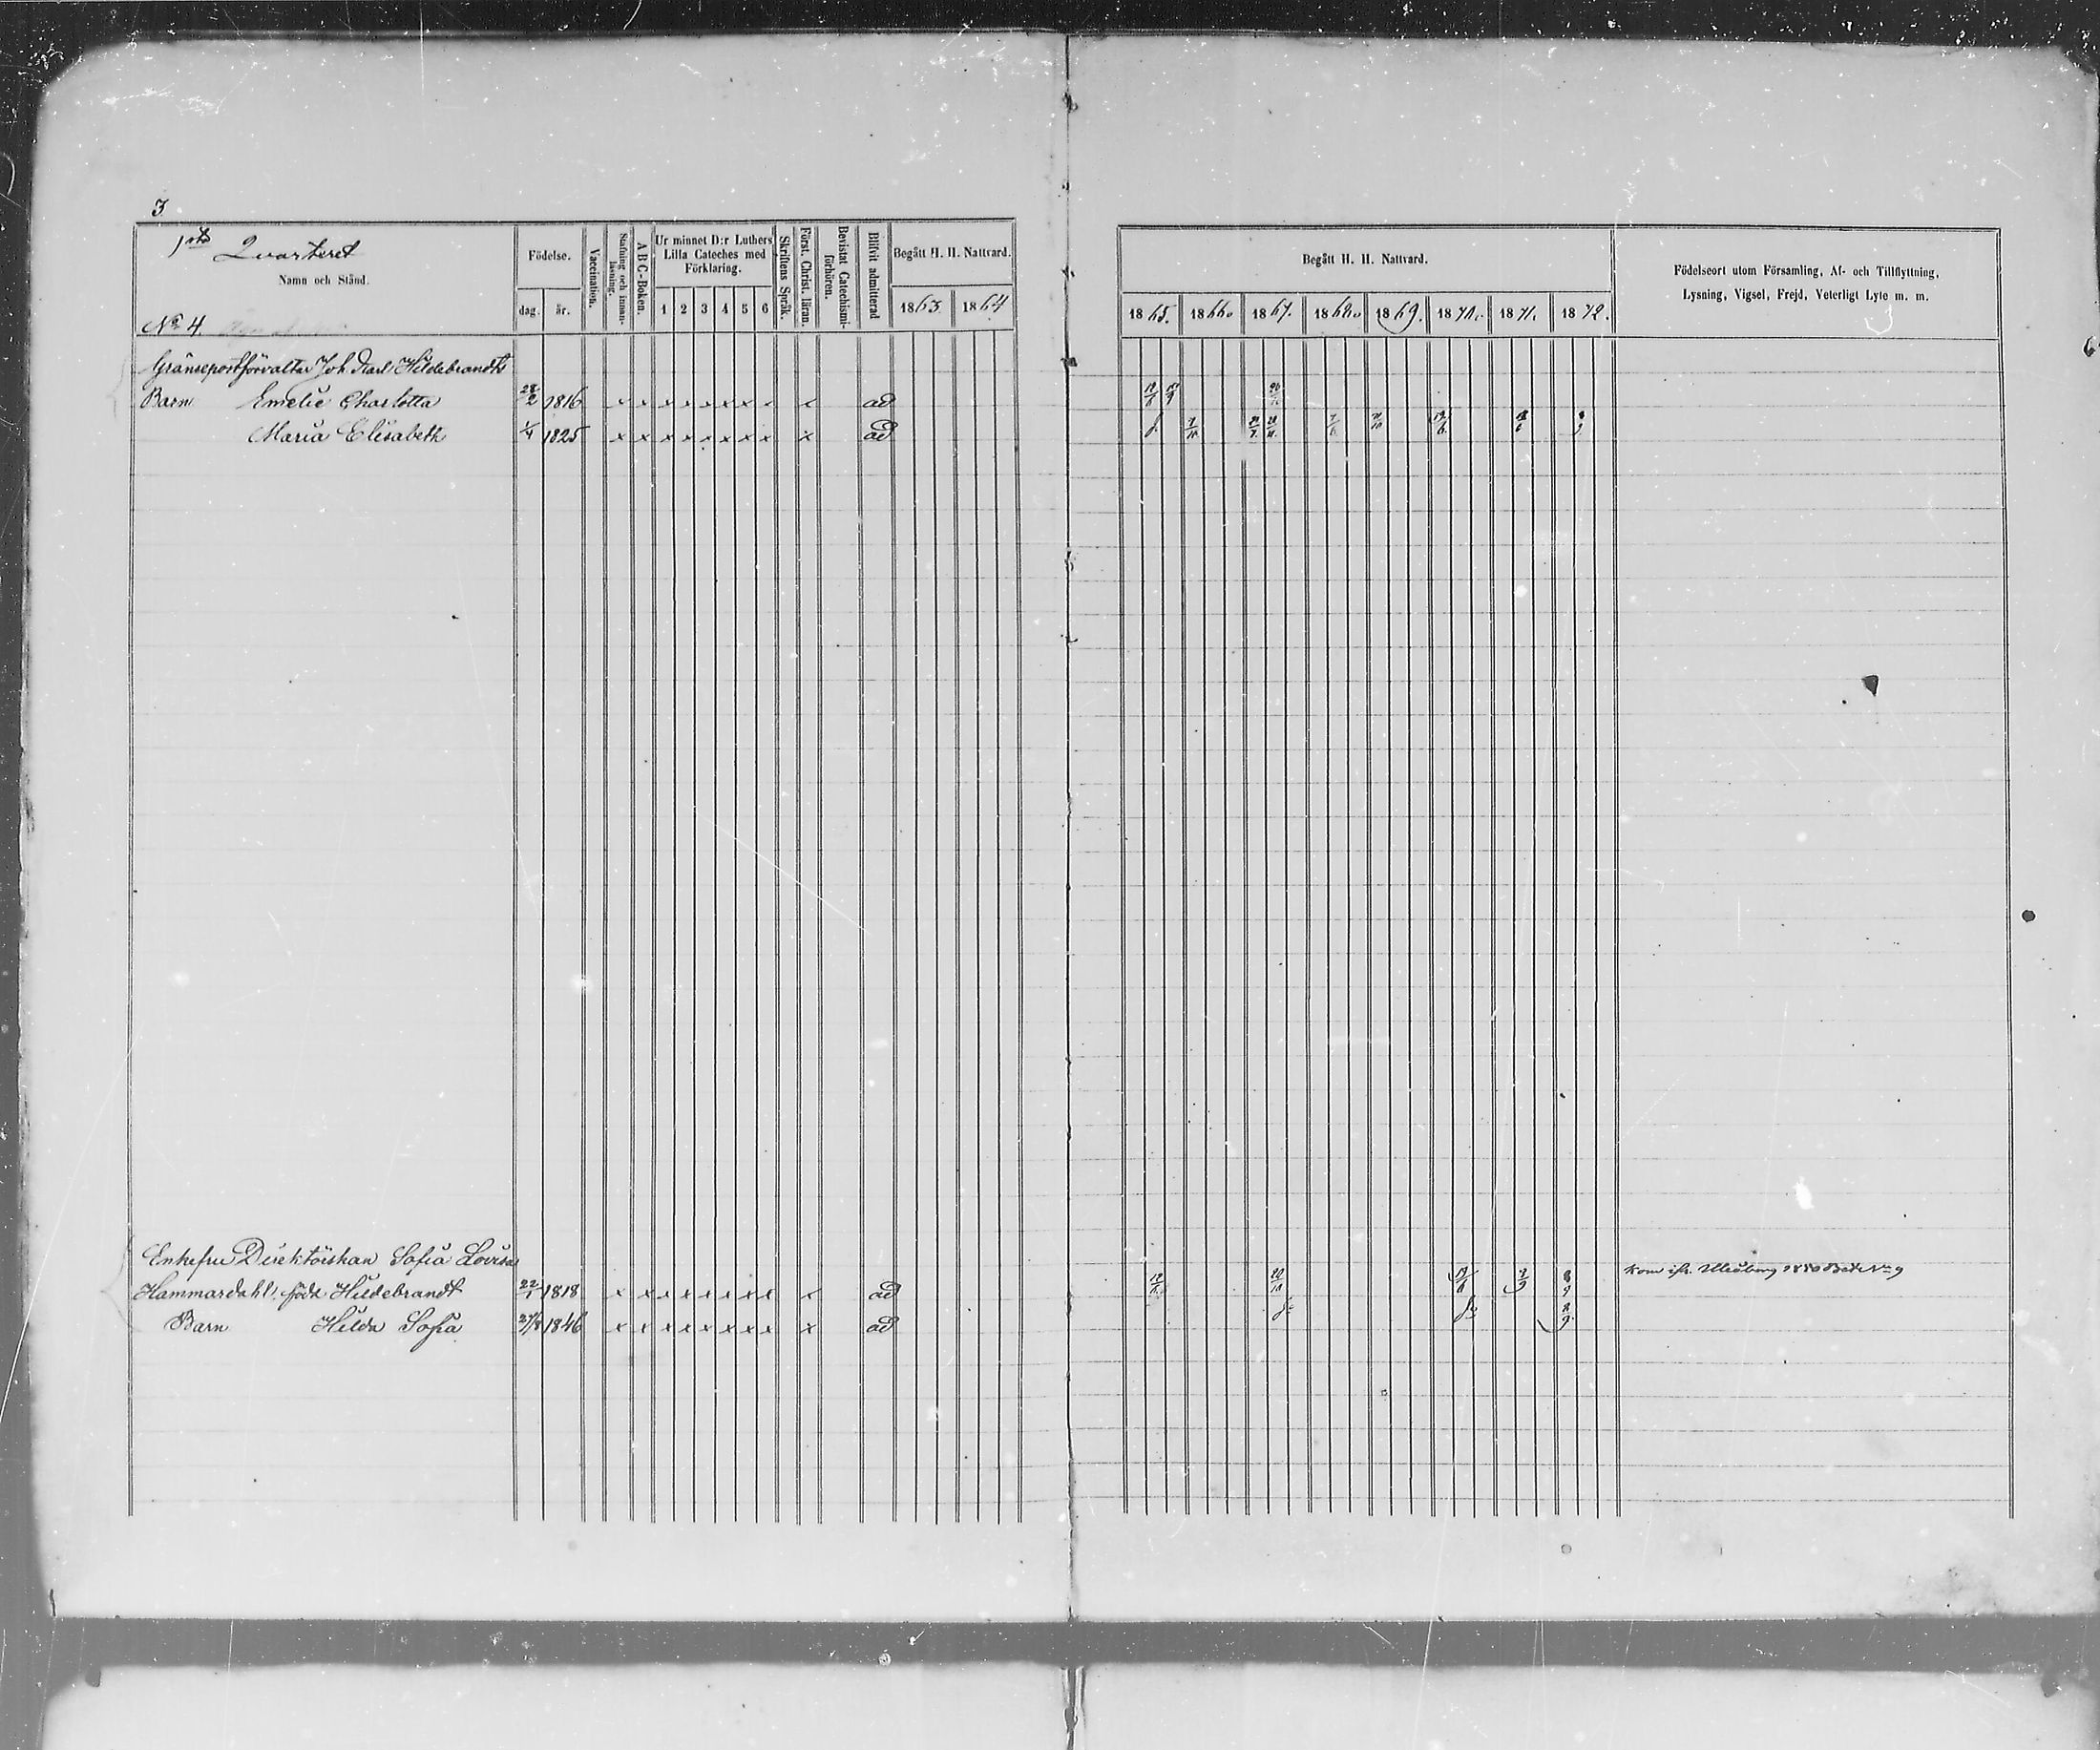 3
1sta Quarteret
Namn och Stånd.
No 4.
Födelse.
dag.
år.
Vaccination.
Stafning och innanläsning.
A B C-Boken.
Ur minnet D:r Luthers Lilla Cateches med Förklaring.
1 2 3 4 5 6
Skriftens Språk.
Först. Christ. läran.
Bevistat Catechismiförhören.
Blifvit admitterad
Begått H. H. Nattvard.
1863. 1864
Begått H. H. Nattvard.
1865. 1866. 1867. 1868. 1869. 1870. 1871. 1872.
Födelseort utom Församling, Af- och Tillflyttning,
Lysning, Vigsel, Frejd, Veterligt Lyte m. m.
Gränsepostförvaltar Joh. Karl Hildebrandts
Barn Emelie Charlotta 28/2 1816 x x x x x x x x x ad
Maria Elisabeth 1/4 1825 x x x x x x x x x ad
Enkefru Direktörskan Sofia Lovisa
Hammardahl, född Hildebrandt 22/1 1818 x x x x x x x x x ad
Barn Hilda Sofia 27/8 1846 x x x x x x x x x ad